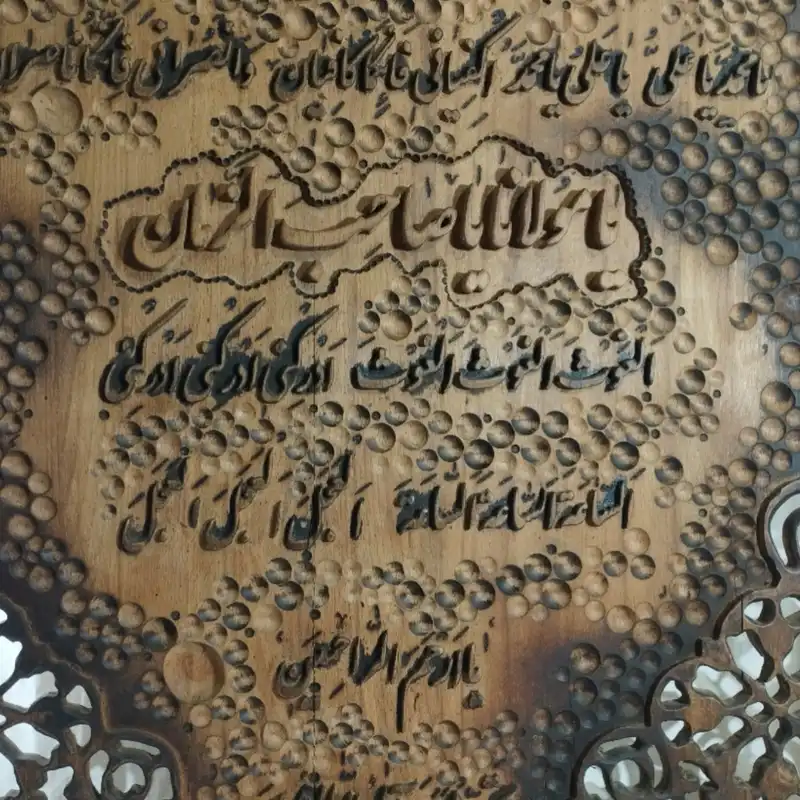 یا محمد یا علی یا علی یا محمد اکفیانی فانکما کافیان وانصرانی فانکما ناصران
یا مولانا یا صاحب الزمان
الغوث الغوث الغوث ادرکنی ادرکنی ادرکنی
الساعة الساعة الساعة العجل العجل العجل
یا ارحم الراحمین